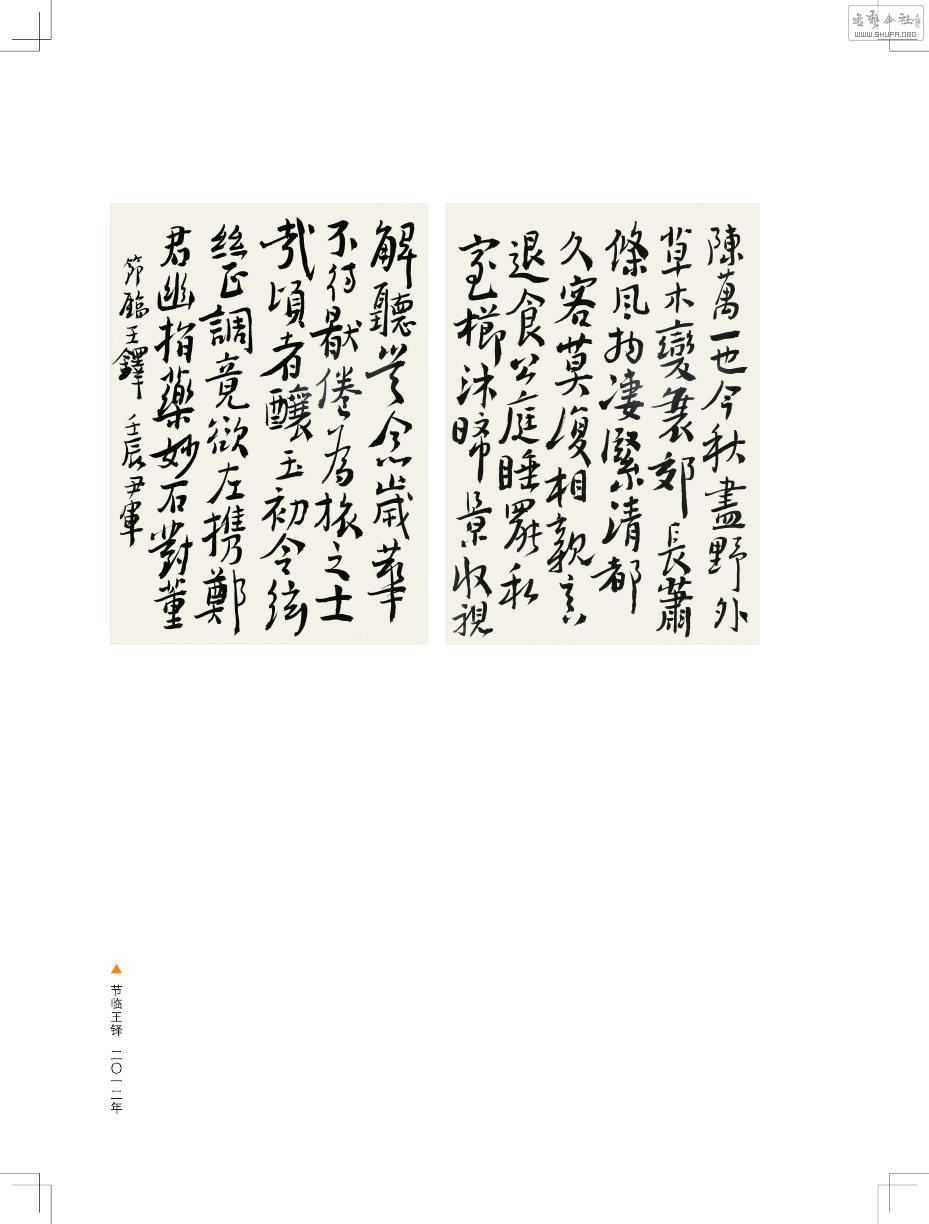 陳萬一也今秋盡野外
草木變衰郊長蕭
條風物凄緊清都
久客莫復相親言
退食公庭睡罷私
室櫛沐晞景收視
解聽崇念歲華
不待厭倦為旅之士
哉頃者釀玉初令絃
絲正調竟欲左携鄭
君幽指藥妙石對董
節臨王鐸 壬辰尹軍
节临王铎 二〇一二年
WWW.SHUFA.ORG